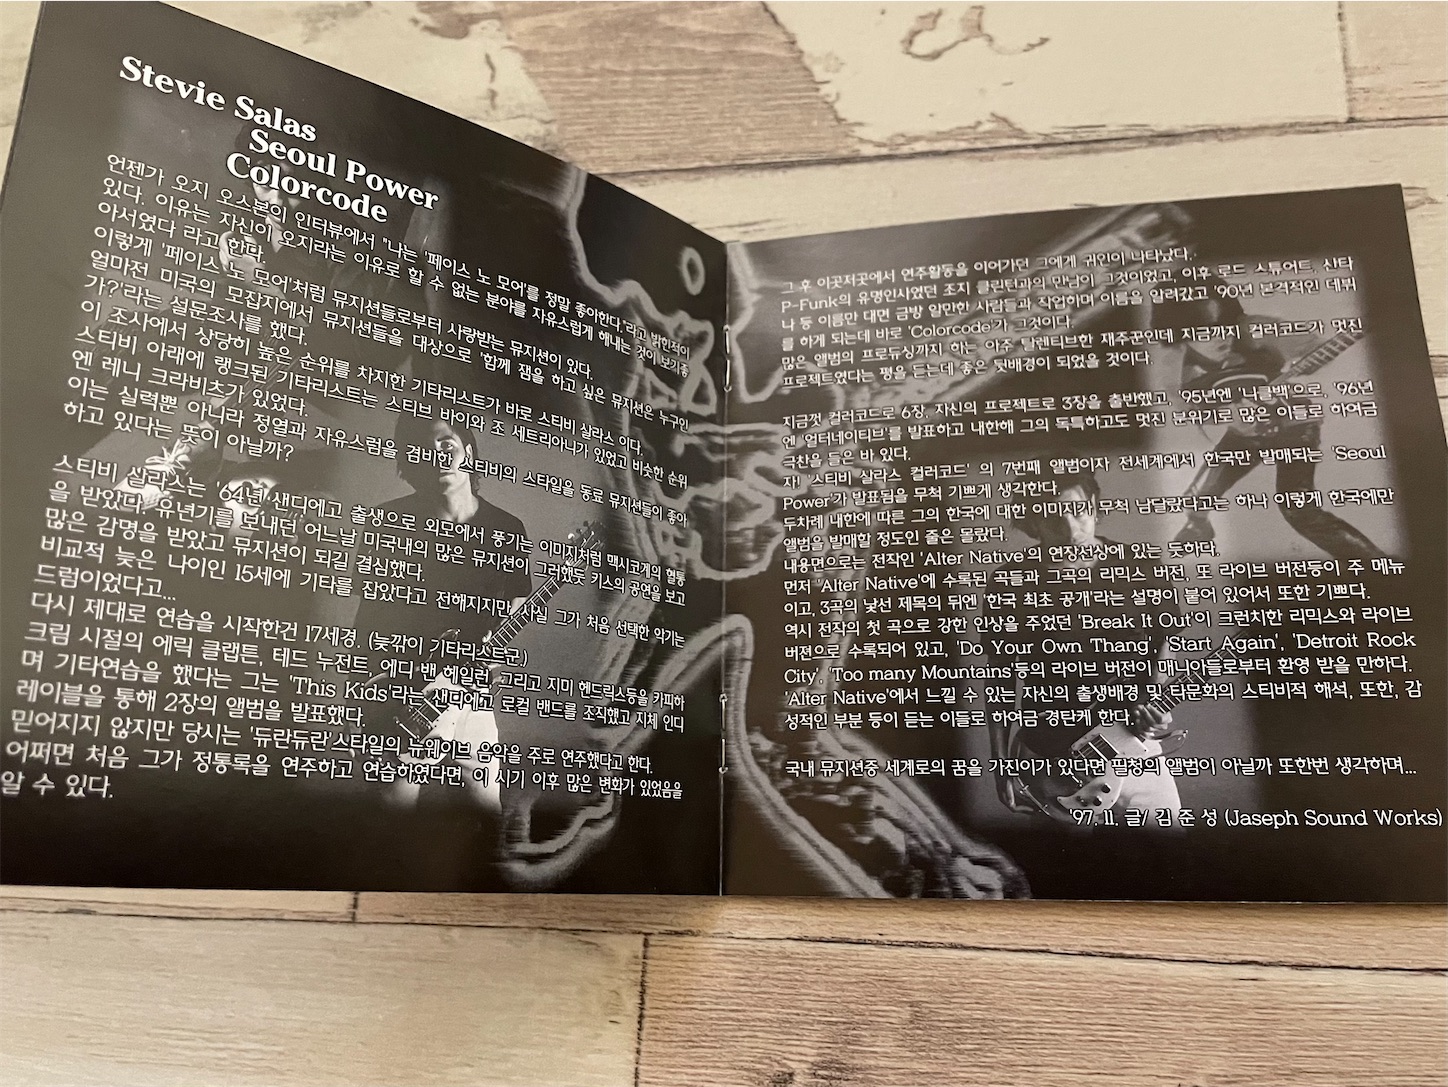 Stevie Salas
Seoul Power
Colorcode
언젠가 오지 오스본이 인터뷰에서 "나는 '페이스 노 모어'를 정말 좋아한다."라고 밝힌적이
있다. 이유는 자신이 오지라는 이유로 할 수 없는 분야를 자유스럽게 해내는 것이 보기좋
아서였다 라고 한다.
이렇게 '페이스 노 모어'처럼 뮤지션들로부터 사랑받는 뮤지션이 있다.
얼마전 미국의 모잡지에서 뮤지션들을 대상으로 '함께 잼을 하고 싶은 뮤지션은 누구인
가?'라는 설문조사를 했다.
이 조사에서 상당히 높은 순위를 차지한 기타리스트가 바로 스티비 살라스 이다.
스티비 아래에 랭크된 기타리스트는 스티브 바이와 조 세트리아니가 있었고 비슷한 순위
엔 레니 크라비츠가 있었다.
이는 실력뿐 아니라 정열과 자유스럼을 겸비한 스티비의 스타일을 동료 뮤지션들이 좋아
하고 있다는 뜻이 아닐까?
스티비 살라스는 '64년 샌디에고 출생으로 외모에서 풍기는 이미지처럼 맥시코계의 혈통
을 받았다. 유년기를 보내던 어느날 미국내의 많은 뮤지션이 그러했듯 키스의 공연을 보고
많은 감명을 받았고 뮤지션이 되길 결심했다.
비교적 늦은 나이인 15세에 기타를 잡았다고 전해지지만 사실 그가 처음 선택한 악기는
드럼이었다고...
다시 제대로 연습을 시작한건 17세경. (늦깎이 기타리스트군.)
크림 시절의 에릭 클랩튼, 테드 누전트, 에디 밴 헤일런, 그리고 지미 헨드릭스등을 카피하
며 기타연습을 했다는 그는 'This Kids'라는 샌디에고 로컬 밴드를 조직했고 자체 인디
레이블을 통해 2장의 앨범을 발표했다.
믿어지지 않지만 당시는 '듀란듀란'스타일의 뉴웨이브 음악을 주로 연주했다고 한다.
어쩌면 처음 그가 정통록을 연주하고 연습하였다면, 이 시기 이후 많은 변화가 있었음을
알 수 있다.
그 후 이곳저곳에서 연주활동을 이어가던 그에게 귀인이 나타났다.
P-Funk의 유명인사였던 조지 클린턴과의 만남이 그것이었고, 이후 로드 스튜어트, 산타
나 등 이름만 대면 금방 알만한 사람들과 작업하며 이름을 알려갔고 '90년 본격적인 데뷔
를 하게 되는데 바로 'Colorcode'가 그것이다.
많은 앨범의 프로듀싱까지 하는 아주 탈렌티브한 재주꾼인데 지금까지 컬러코드가 멋진
프로젝트였다는 평을 듣는데 좋은 뒷배경이 되었을 것이다.
지금껏 컬러코드로 6장, 자신의 프로젝트로 3장을 출반했고, '95년엔 '니클백'으로, '96년
엔 '얼터네이티브'를 발표하고 내한해 그의 독특하고도 멋진 분위기로 많은 이들로 하여금
극찬을 들은 바 있다.
자! '스티비 살라스 컬러코드' 의 7번째 앨범이자 전세계에서 한국만 발매되는 'Seoul
Power'가 발표됨을 무척 기쁘게 생각한다.
두차례 내한에 따른 그의 한국에 대한 이미지가 무척 남달랐다고는 하나 이렇게 한국에만
앨범을 발매할 정도인 줄은 몰랐다.
내용면으로는 전작인 'Alter Native'의 연장선상에 있는 듯하다.
먼저 'Alter Native'에 수록된 곡들과 그곡의 리믹스 버전, 또 라이브 버전등이 주 메뉴
이고, 3곡의 낯선 제목의 뒤엔 '한국 최초 공개'라는 설명이 붙어 있어서 또한 기쁘다.
역시 전작의 첫 곡으로 강한 인상을 주었던 'Break It Out'이 크런치한 리믹스와 라이브
버젼으로 수록되어 있고, 'Do Your Own Thang', 'Start Again', 'Detroit Rock
City', 'Too many Mountains'등의 라이브 버전이 매니아들로부터 환영 받을 만하다.
'Alter Native'에서 느낄 수 있는 자신의 출생배경 및 타문화의 스티비적 해석, 또한, 감
성적인 부분 등이 듣는 이들로 하여금 경탄케 한다.
국내 뮤지션중 세계로의 꿈을 가진이가 있다면 필청의 앨범이 아닐까 또한번 생각하며...
'97. 11. 글/ 김 준 성 (Jaseph Sound Works)